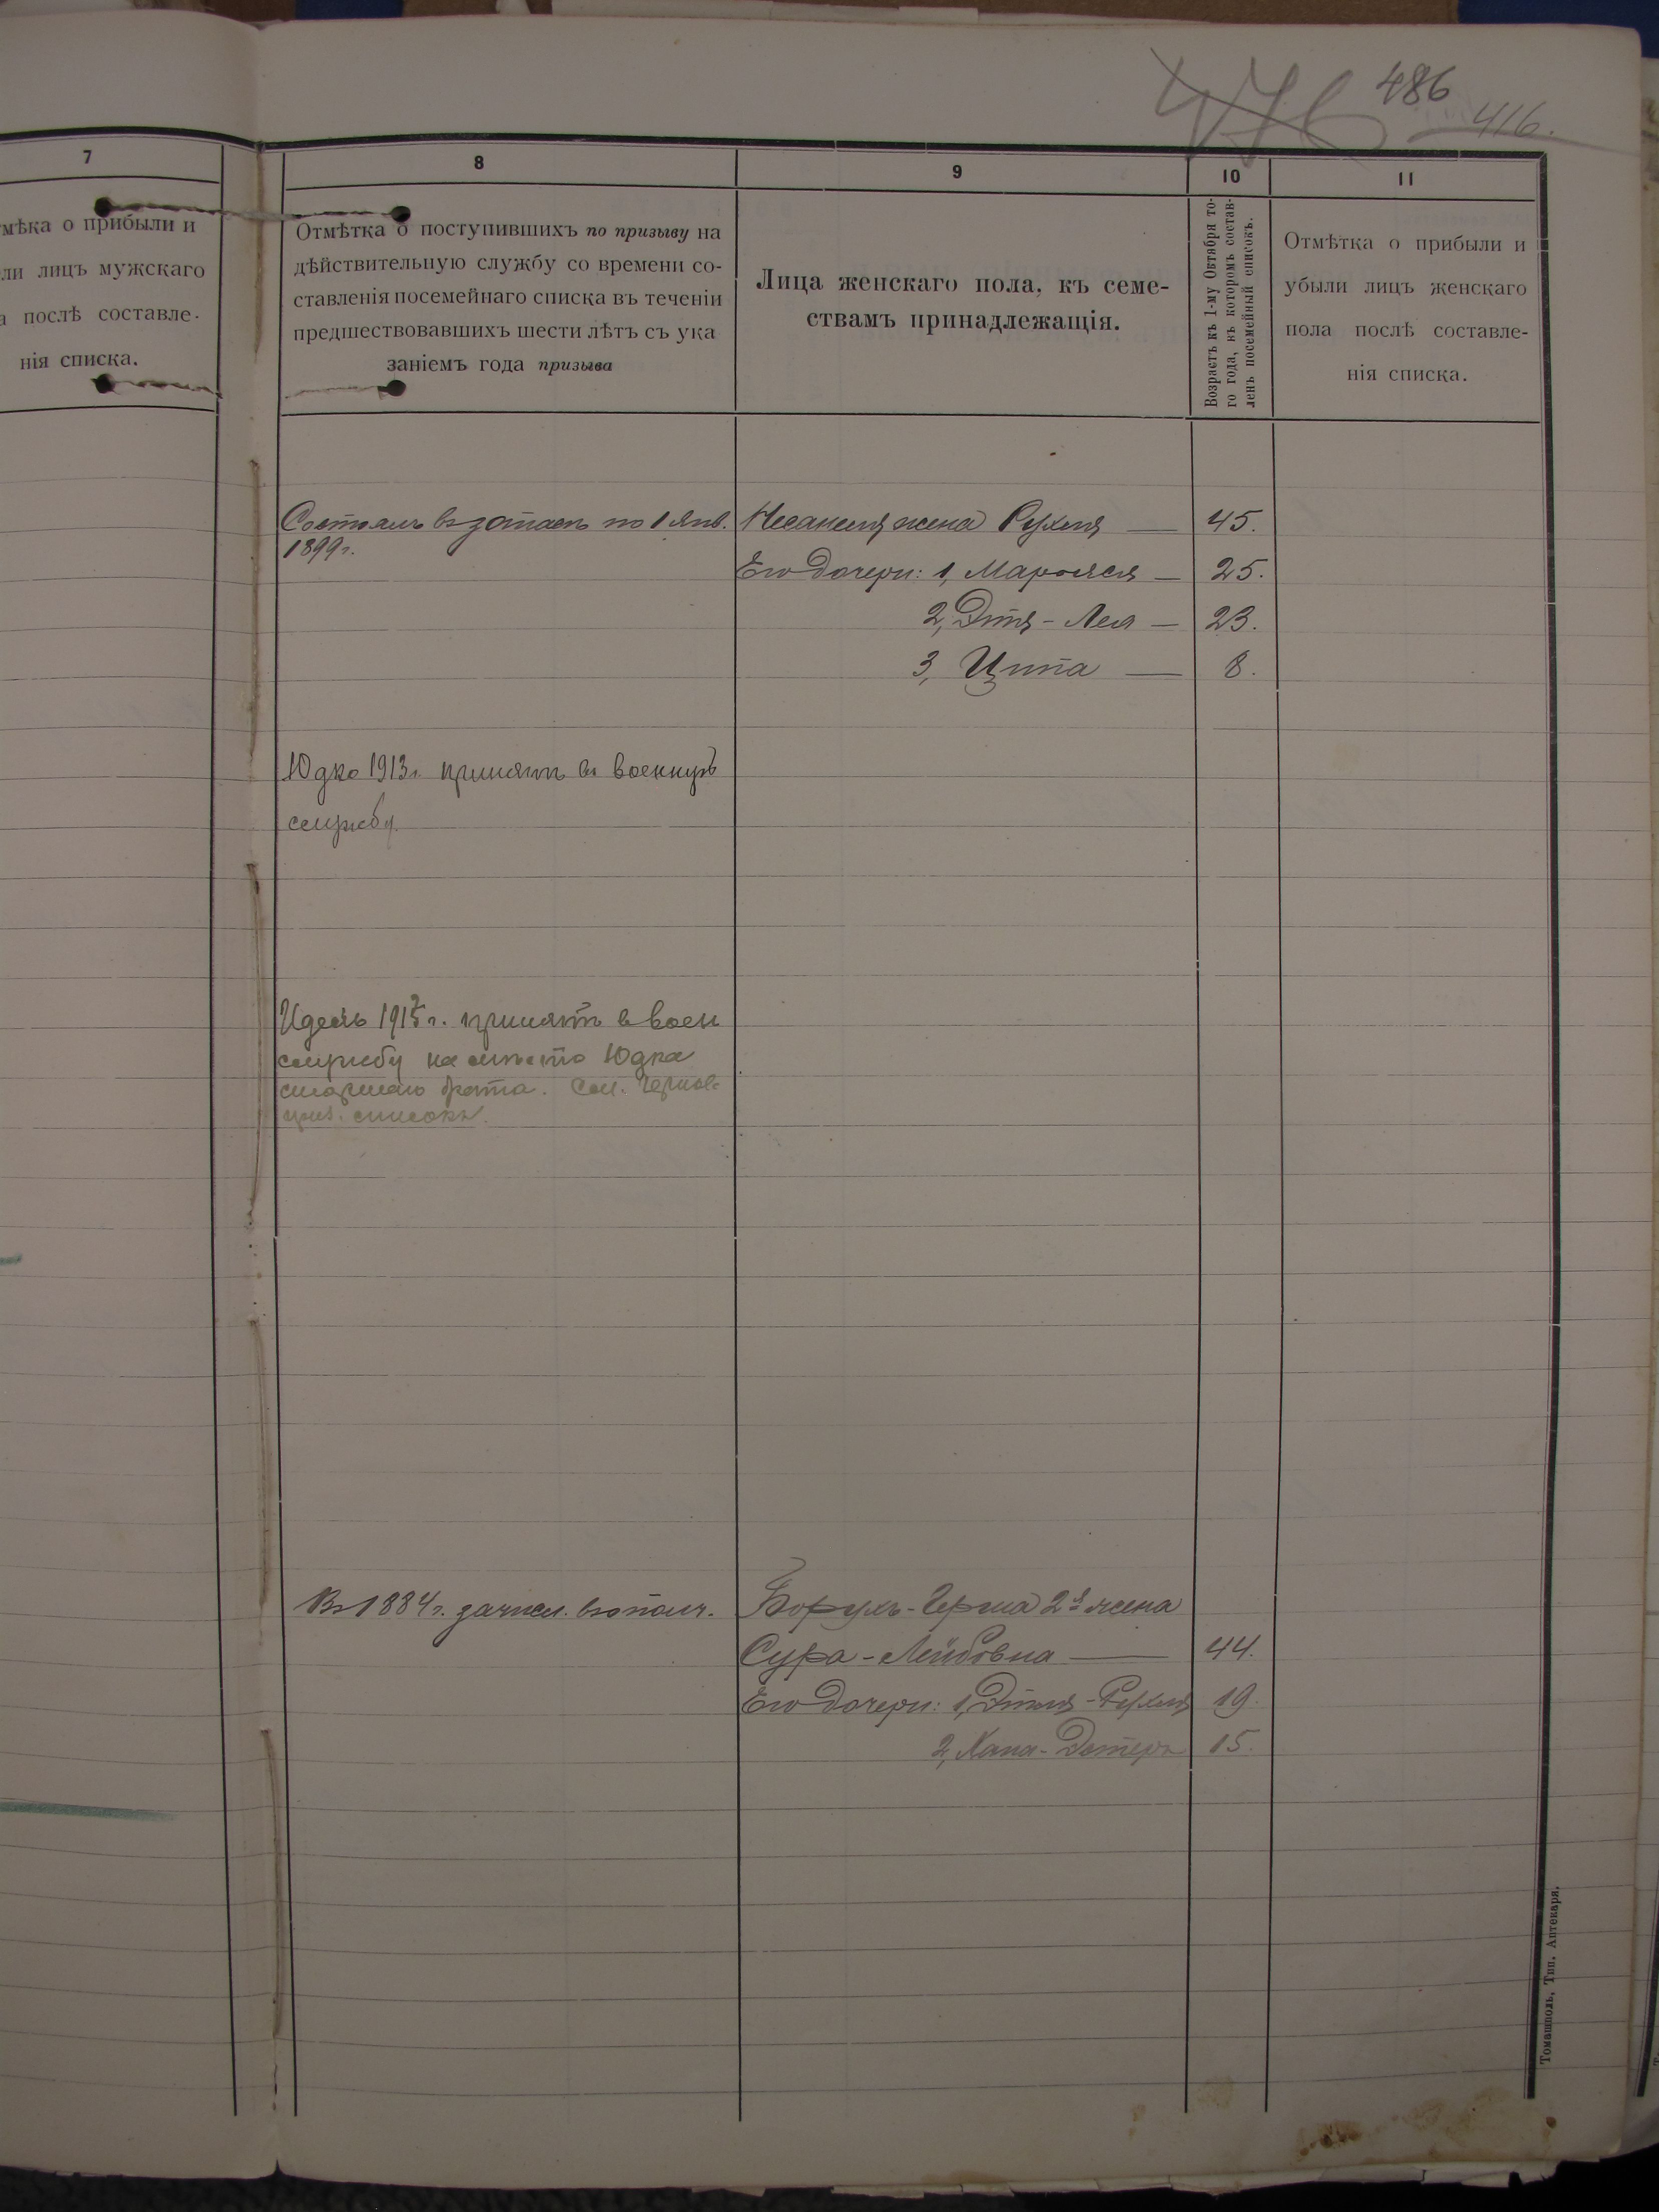 476 486 416.
7
мѣка о прибыли и
ли лицъ мужскаго
а послѣ составле-
нія списка.
8
Отмѣтка о поступившихъ по призыву на
дѣйствительную службу со времени со-
ставленія посемейнаго списка въ теченіи
предшествовавшихъ шести лѣтъ съ ука
заніемъ года призыва
9
Лица женскаго пола, къ семе-
ствамъ принадлежащія.
10
Возрастъ къ 1-му Октября то-
го года, въ которомъ состав-
ленъ посемейный списокъ.
11
Отмѣтка о прибыли и
убыли лицъ женскаго
пола послѣ составле-
нія списка.
Состоялъ въ запасѣ по 1 Янв.
1899 г.
жена Рухля — 45.
Его дочери: 1, — 25.
2, Этя - Лея — 23.
3, Ципа — 8.
Юдко 1913 г. принятъ въ военную
службу.
1915 г. принятъ в воен
службу на мѣсто Юдка
старшаго брата. См.
списокъ.
Въ 1884 г. зачисл. въ ополч.
Борухъ-Герша 2я жена
Сура - Лейбовна — 44.
Его дочери: 1, Этля - Рухля 19.
2, Хана - Эстеръ 15.
Томашполь, Тип. Аптекаря.